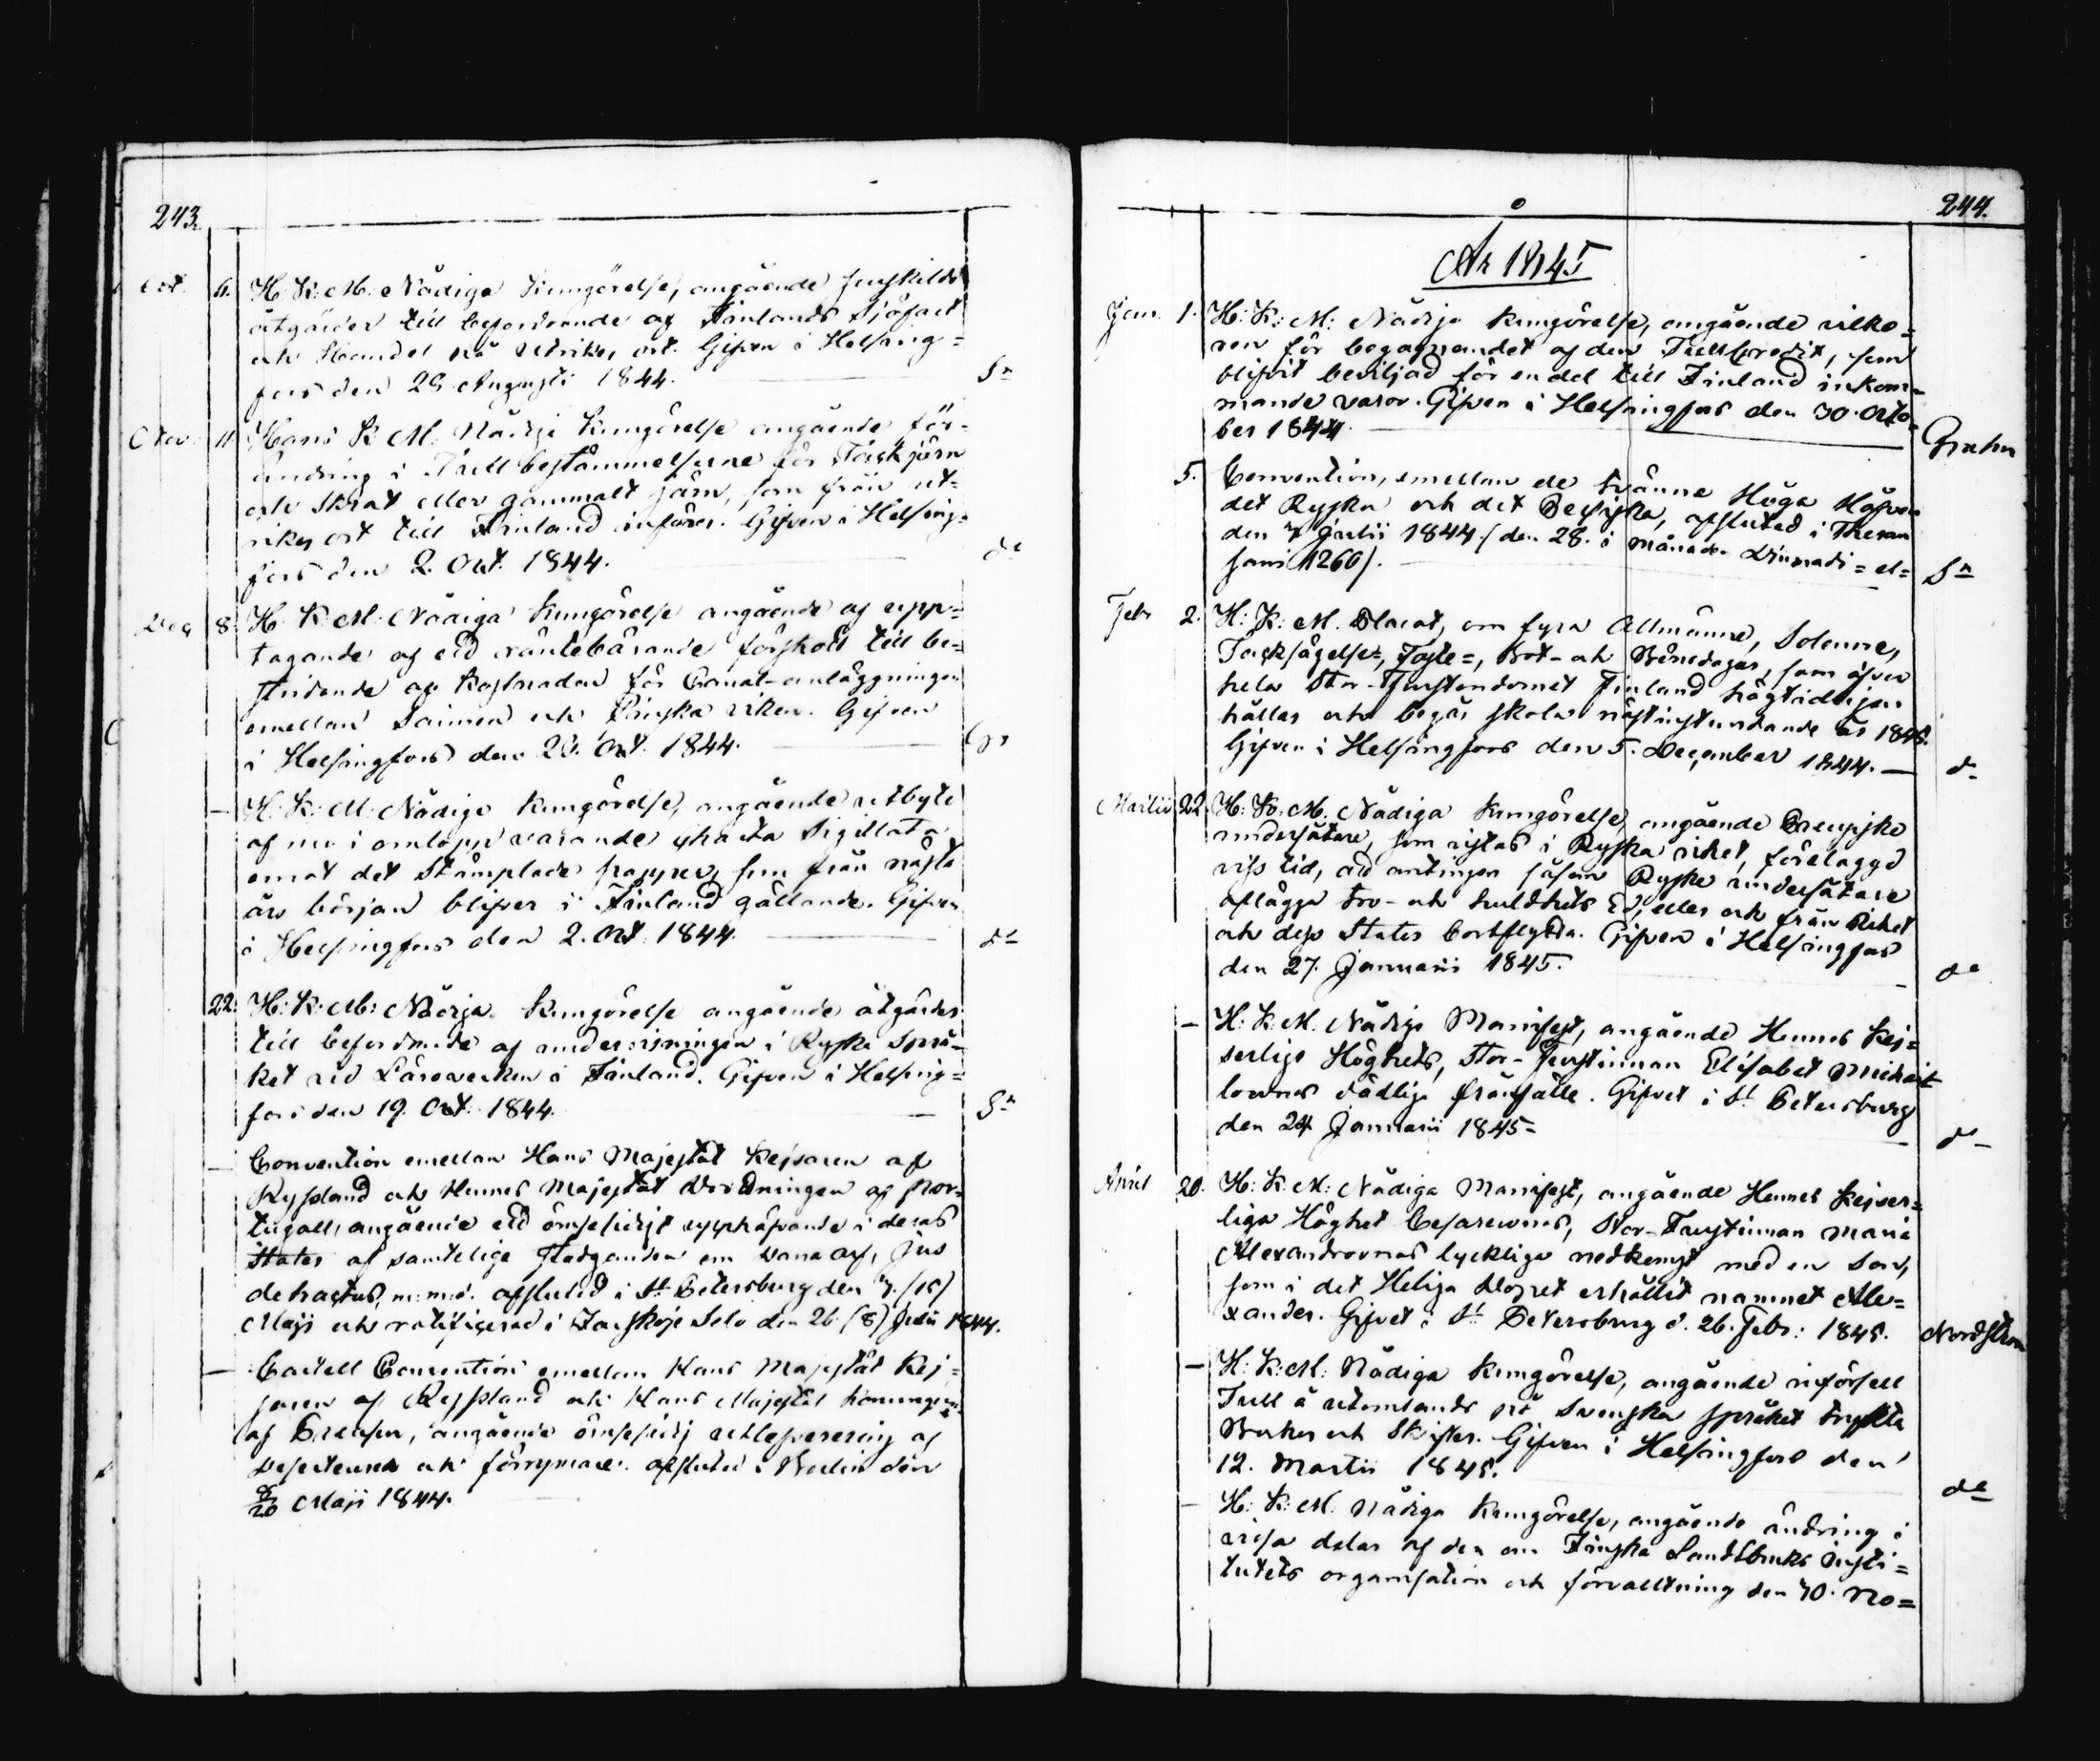 243.
Oct. 6. H. K. M. Nådiga Kungörelse, angående serskilda
åtgärder till befordrande af Finlands Sjöfart
och Handel på Utrikes ort. Gifven i Helsing=
fors den 28 Augusti 1844. Sn
11 Hans K. M. Nådiga Kungörelse angående för-
ändring i Tullbestämmelserne för Tackjärn
och Skrot eller gammalt järn, som från ut-
rikes ort till Finland införes. Gifven i Helsing-
fors den 2. Oct. 1844. do
Dec 8. H. K. M. Nådiga Kungörelse angående upp-
tagande af ett räntebärande förskott till be-
stridande af kostnaden för Canal-anläggningen
emellan Saimen och Finska viken. Gifven
i Helsingfors den 28. Oct. 1844.
— H. K: M: Nådiga Kungörelse, angående utbyte
af nu i omlopp varande Charta Sigillata
emot det Stämplade papper, som från nästa
års början blifver i Finland gällande. Gifven
i Helsingfors den 2. Oct. 1844. do
22. H: K: M: Nådiga Kungörelse angående åtgärder
till befordrande af undervisningen i Ryska Språ-
ket vid Läroverken i Finland. Gifven i Helsing=
fors den 19. Oct. 1844. Sn
— Convention emellan Hans Majestät Kejsaren af
Ryssland och Hennes Majestät Drottningen af Por-
tugall, angående ett ömsesidigt upphäfvande i deras
Stater af samtelige stadganden om Dana arf, jus
detractus, m: m: d. afslutad i St Petersburg den 3. (15)
Maji och ratificerad i Zarskoje Selo den 26 (8) Julii 1844.
— Cartell Convention emellan Hans Majestät Kej=
saren af Ryssland och Hans Majestät Konungen
af Preussen, angående ömsesidig utlefverering af
Deserteurer och förrymare. afslutad i Berlin den
8/20 Maji 1844.
244.
År 1845
Jan. 1. H: K: M: Nådiga Kungörelse, angående vilko=
ren för begagnandet af den Tullcredit, som
blifvit beviljad för en del till Finland inkom-
mande varor. Gifven i Helsingfors den 30. Octo=
ber 1844.
5. Convention, emellan de tvänne Höga Höfven
det Ryska och det Persiska, afslutad i Theran
den 3 Julii 1844. (den 28. i månaden Dsiumadi = el=
sani 1260). Sn
Febr 2. H: K: M. Placat, om fyra Allmänne, Solenne,
Tacksägelse=, Faste=, Bot- och Bönedagar, som öfver
hela Stor-Furstendömet Finland högtideligen
hållas och begås skola nästinstundande år 1845.
Gifven i Helsingfors den 5. December 1844. — do
Martii 22. H: K. M. Nådiga Kungörelse, angående Preussiske
undersåtare, som vistas i Ryska riket, förelagde
viss tid, att antingen såsom Ryske undersåtare
aflägga tro- och huldhets Ed, eller och från Riket
och dess Stater bortflytta. Gifven i Helsingfors
den 27. Januarii 1845. do
— H: K: M. Nådiga Manifest, angående Hennes Kej=
serliga Höghets, Stor-Furstinnan Elisabet Michai=
lownas dödliga frånfälle. Gifvet i St Petersburg
den 24 Januarii 1845- do
April 20. H: K: M: Nådiga Manifest, angående Hennes Kejser=
liga Höghet Cesarewnas, Stor-Furstinnan Maria
Alexandrovnas lyckliga nedkomst med en Son,
som i det Heliga Dopet erhållit namnet Ale=
xander. Gifvet i St Petersburg d. 26. Febr: 1845. Nordström
— H: K: M: Nådiga Kungörelse, angående införsell
Tull å utomlands på Svenska språket tryckta
Böcker och Skrifter. Gifven i Helsingfors den
12. Martii 1845. do
— H: K: M. Nådiga Kungörelse, angående ändring i
vissa delar af den om Finska Landtbruks Insti=
tutets organisation och förvalltning den 30. No=